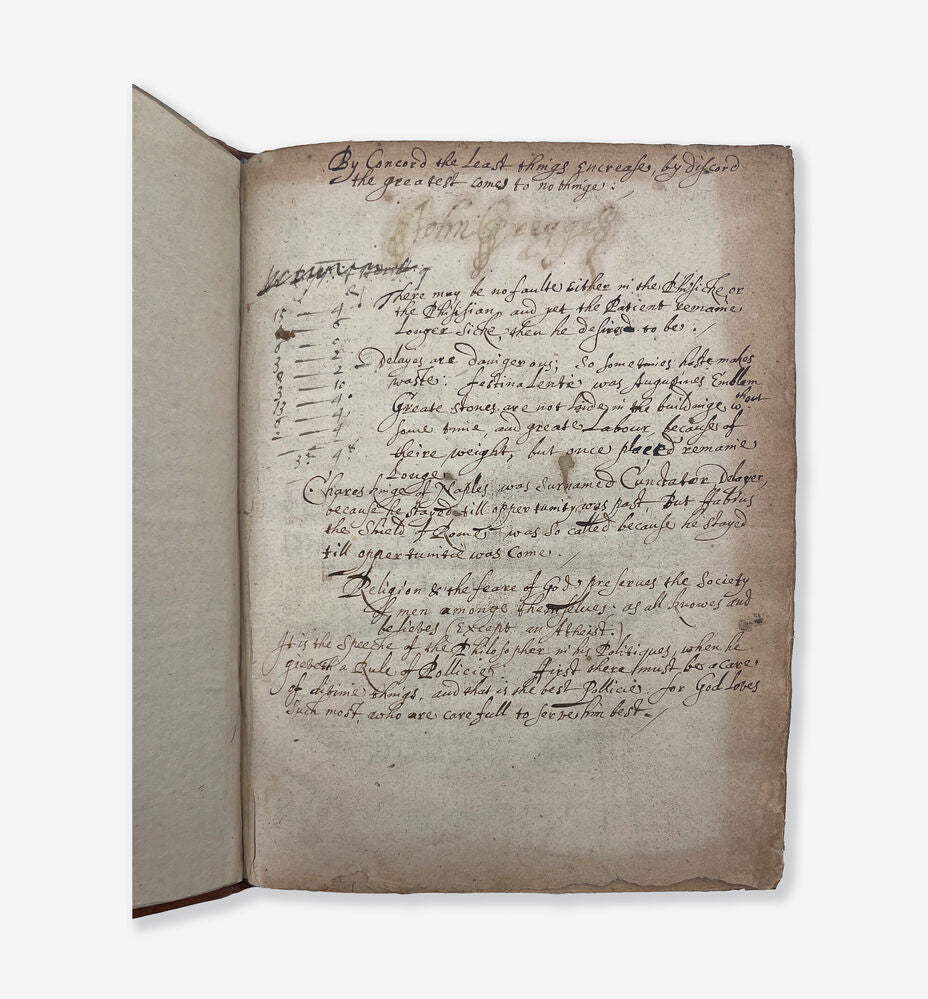 By Concord the Least things Encrease, by discord
the greatest comes to nothinge ./
John Greggs
There may be no faulte Either in the Phisicke, or
the Phisisian, and yet the Patient remaine
Longer Sicke, then he desires to be ./
Delayes are daingerous; So sometimes haste makes
waste. festina Lente was Augustines Emblem
Greate stones are not laide in the buildinge wthout
some time, and greate Labour, because of
theire weight, but once placed remaine
Longe
Charos kinge of Naples was Surnamed Cunctator Delayer,
because he stayed till oppertunity was past, But ffabius
the Shield of Rome was so called because he stayed
till oppertunitie was come ./
Religion & the feare of God, preserves the Society
of men amonge themselves. as all knowes and
believes (Except an Atheist.)
It is the Speeche of the Philosopher in his Politiques, when he
giveth a Rule of Pollicies: first there must be a care
of divine things, and that is the best Pollicie, for God loves
Such most, who are carefull to serve him best ./